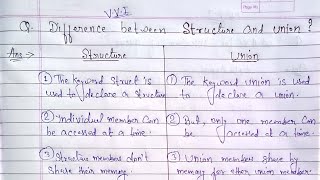 V.V.I
Q. Difference between Structure and union ?
Ans → Structure Union
① The keyword Struct is used to declare a Structure
① The keyword union is used to declare a union.
② Individual member Can be accessed at a time.
② But, only one member Can be accessed at a time.
③ Structure members don't Share their memory.
③ Union members share by memory for other union member